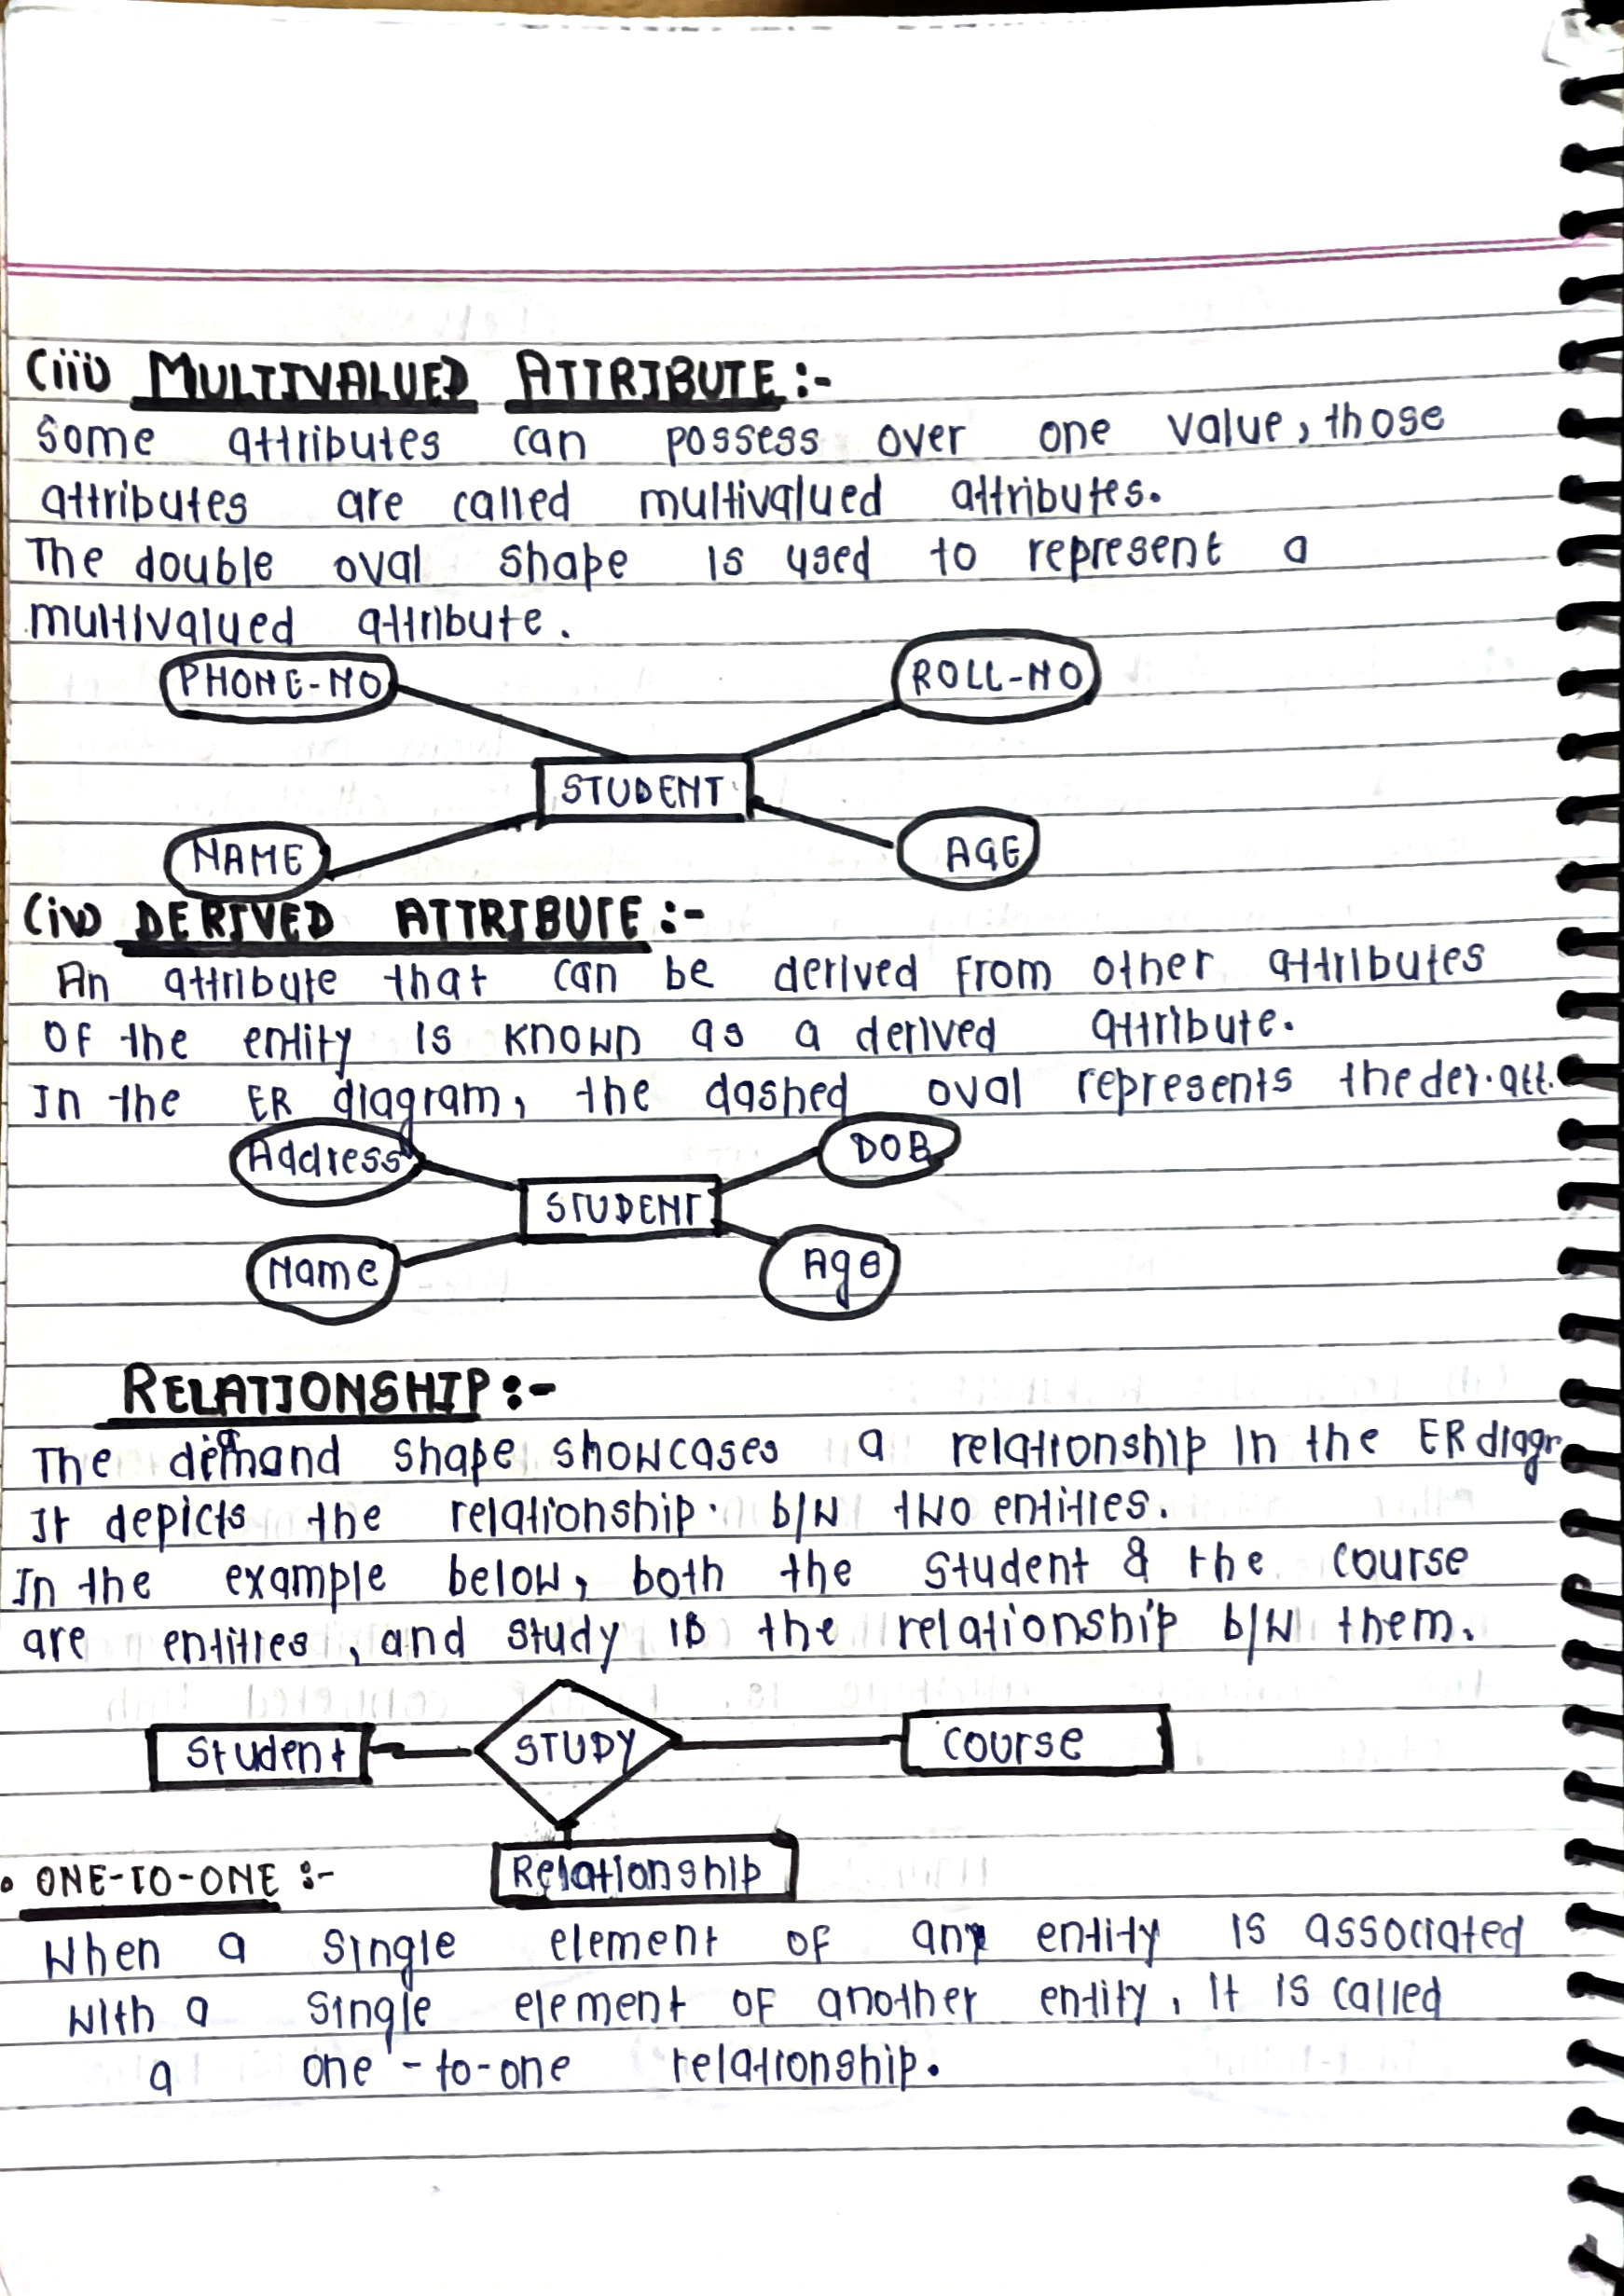 (iii) MULTIVALUED ATTRIBUTE :-
Some attributes can possess over one value, those
attributes are called multivalued attributes.
The double oval shape is used to represent a
multivalued attribute.
PHONE-NO ROLL-NO
STUDENT
NAME AGE
(iv) DERIVED ATTRIBUTE :-
An attribute that can be derived from other attributes
of the entity is known as a derived attribute.
In the ER diagram, the dashed oval represents the der. att.
Address DOB
STUDENT
Name Age
RELATIONSHIP :-
The shape showcases a relationship in the ER diagr
It depicts the relationship b/w two entities.
In the example below, both the student & the course
are entities, and study is the relationship b/w them.
Student STUDY course
Relationship
• ONE-TO-ONE :-
When a single element of any entity is associated
with a single element of another entity, it is called
a one-to-one relationship.